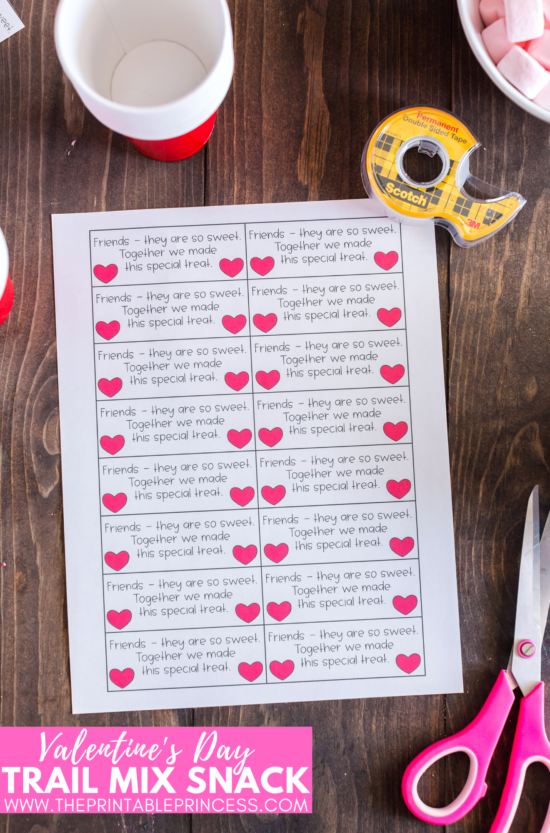 Permanent
Double Sided Tape
Scotch
3M
Friends - they are so sweet. Friends - they are so sweet.
Together we made Together we made
this special treat. this special treat.
Friends - they are so sweet. Friends - they are so sweet.
Together we made Together we made
this special treat. this special treat.
Friends - they are so sweet. Friends - they are so sweet.
Together we made Together we made
this special treat. this special treat.
Friends - they are so sweet. Friends - they are so sweet.
Together we made Together we made
this special treat. this special treat.
Friends - they are so sweet. Friends - they are so sweet.
Together we made Together we made
this special treat. this special treat.
Friends - they are so sweet. Friends - they are so sweet.
Together we made Together we made
this special treat. this special treat.
Friends - they are so sweet. Friends - they are so sweet.
Together we made Together we made
this special treat. this special treat.
Friends - they are so sweet. Friends - they are so sweet.
Together we made Together we made
this special treat. this special treat.
Valentine's Day
TRAIL MIX SNACK
WWW.THEPRINTABLEPRINCESS.COM